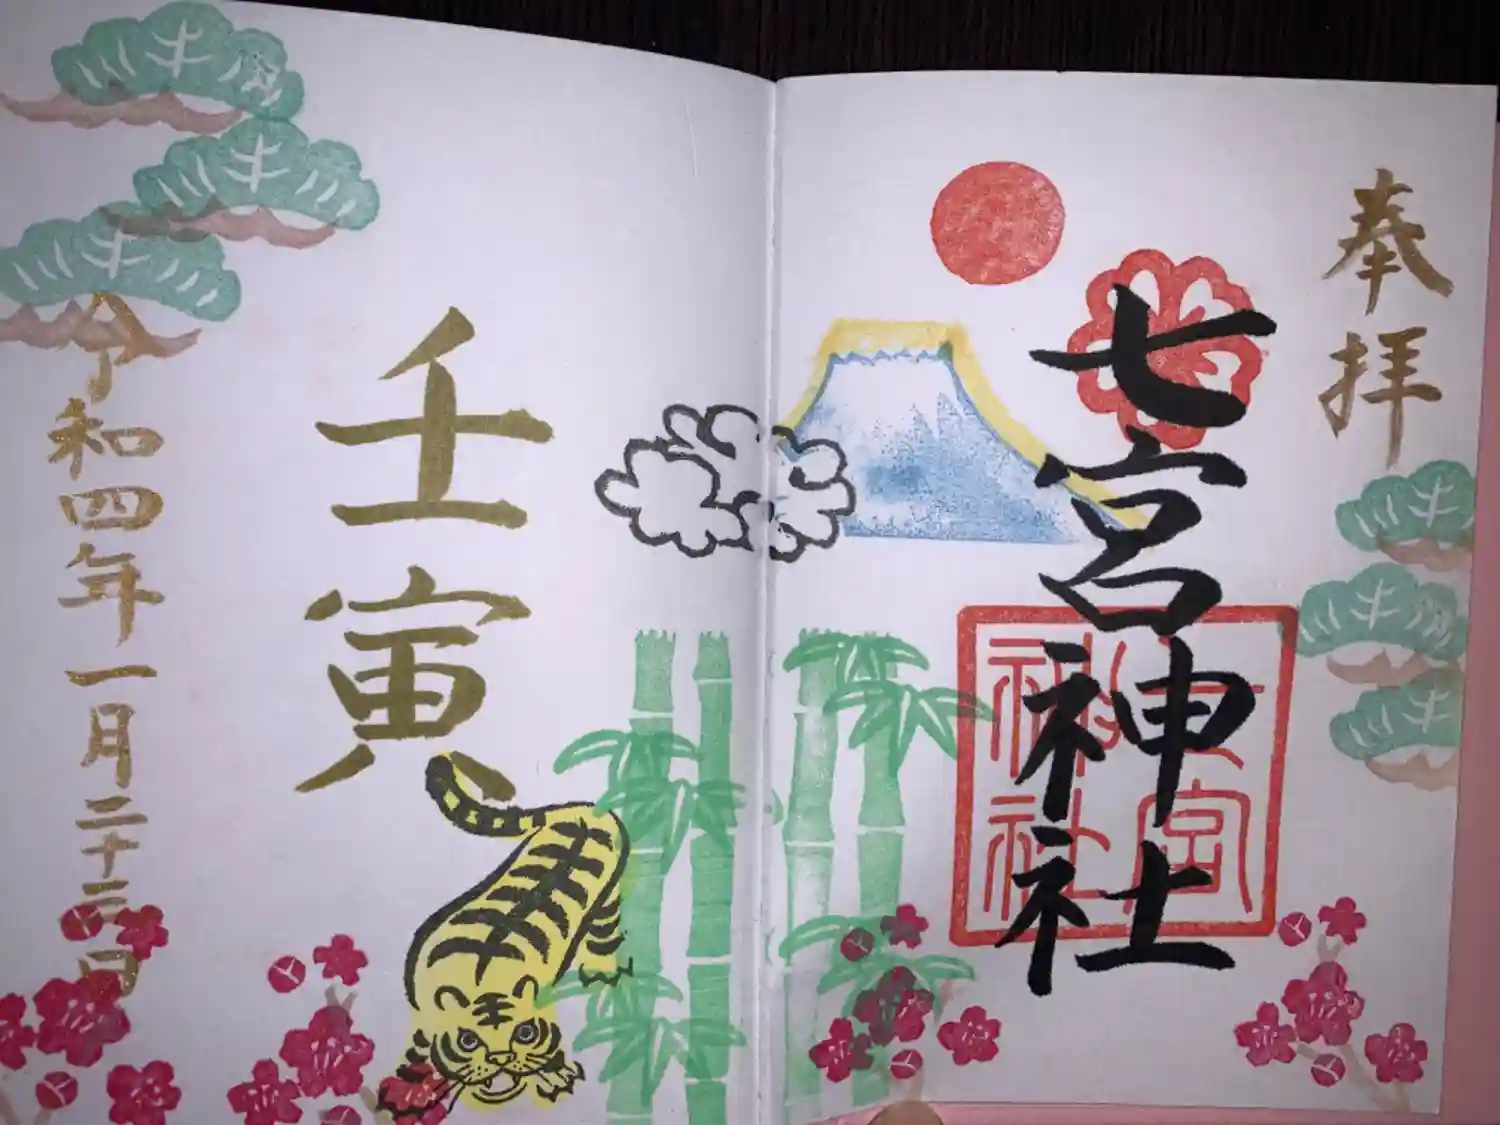 奉拝
七宮神社
壬寅
令和四年一月二十三日